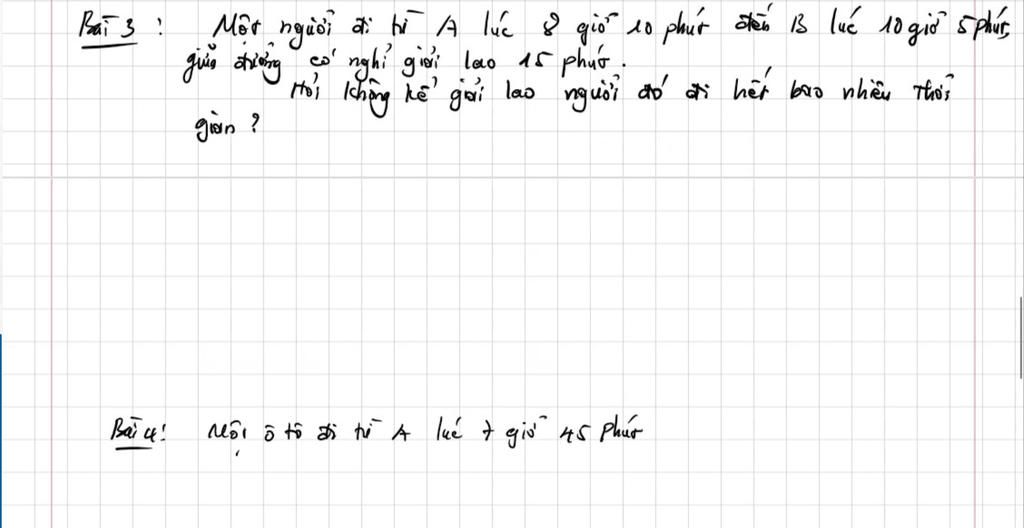 Bài 3 : Một người đi từ A lúc 8 giờ 10 phút đến B lúc 10 giờ 5 phút,
giữa đường có nghỉ giải lao 15 phút.
Hỏi không kể giải lao người đó đi hết bao nhiêu thời
gian ?
Bài 4 : Một ô tô đi từ A lúc 7 giờ 45 phút